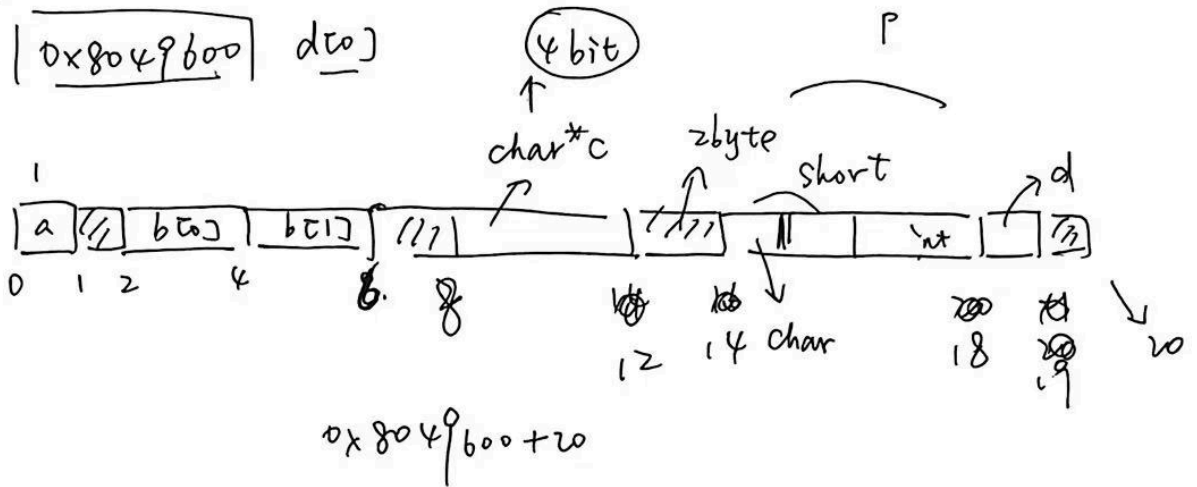 0x8049600 d[0] 4bit P
char*c 2byte short d
1
a b[0] b[1] int
0 1 2 4 6. 8
12 14 char 18 19 20
0x8049600+20